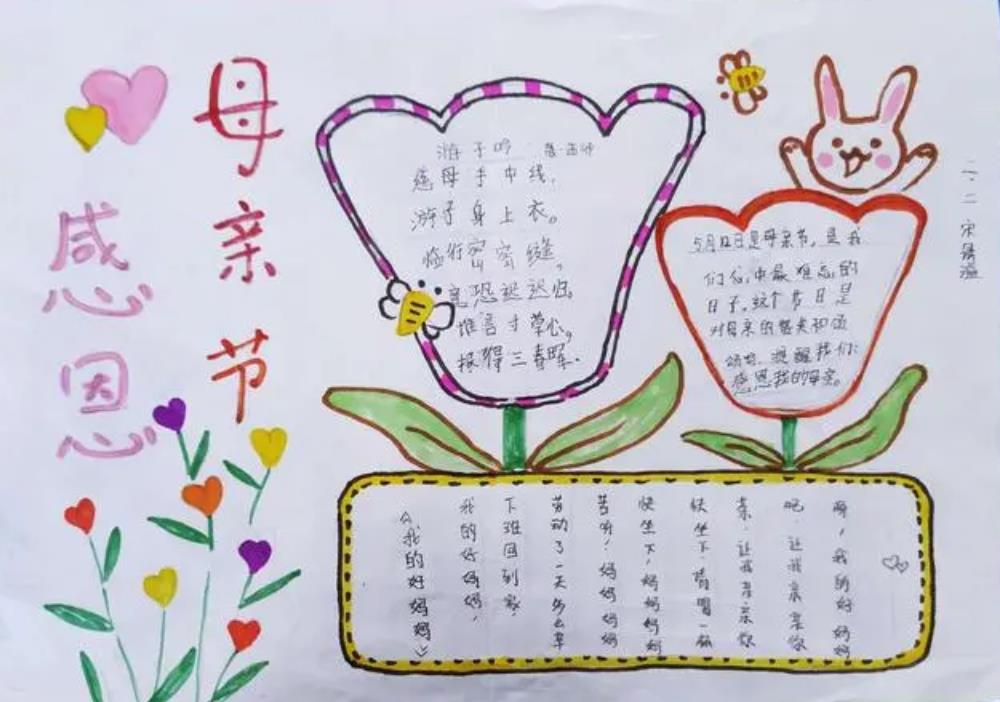 母亲节
感恩
游子吟
慈母手中线,
游子身上衣。
临行密密缝,
意恐迟迟归。
谁言寸草心,
报得三春晖.
5月12日是母亲节,是我
们心中最难忘的
日子,这个节日是
对母亲的赞美和
提醒我们
感恩我的母亲。
二.二 宋
《我的好妈妈》
我的好妈妈,
下班回到家,
劳动了一天多么辛
苦呀!妈妈妈妈
快坐下,妈妈妈妈
快坐下,请喝一杯
茶.让我亲亲你
吧.让我亲亲你
啊,我的好妈妈